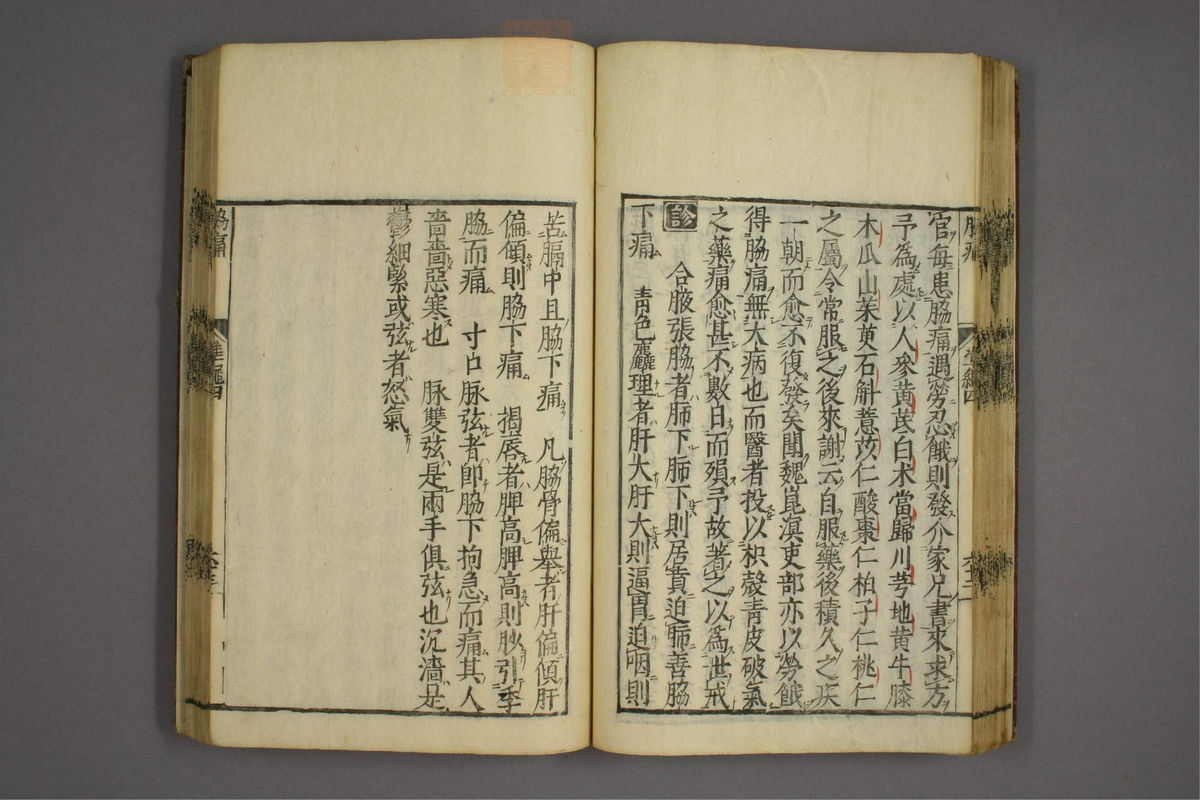 官每患脇痛遇勞忍餓則發介家兄書來求方
予爲處以人參黃芪白术當歸川芎地黄牛膝
木瓜山茱萸石斛薏苡仁酸棗仁柏子仁桃仁
之屬令常服之後來謝云自服藥後積久之疾
一朝而愈不復發矣聞魏崑溟吏部亦以勞餓
得脇痛無大病也而醫者投以枳殻青皮破氣
之藥痛愈甚不數日而殞予故著之以爲世戒
診
合腋張脇者肺下肺下則居賁迫肺善脇
下痛 青色麤理者肝大肝大則逼胃迫咽則
苦膈中且脇下痛 凡脇骨偏舉者肝偏傾肝
偏傾則脇下痛 揭唇者脾高脾高則䏚引季
脇而痛 寸口脉弦者即脇下拘急而痛其人
嗇嗇惡寒也 脉雙弦是兩手俱弦也沉濇是
鬱細緊或弦者怒氣
脇痛
準繩四